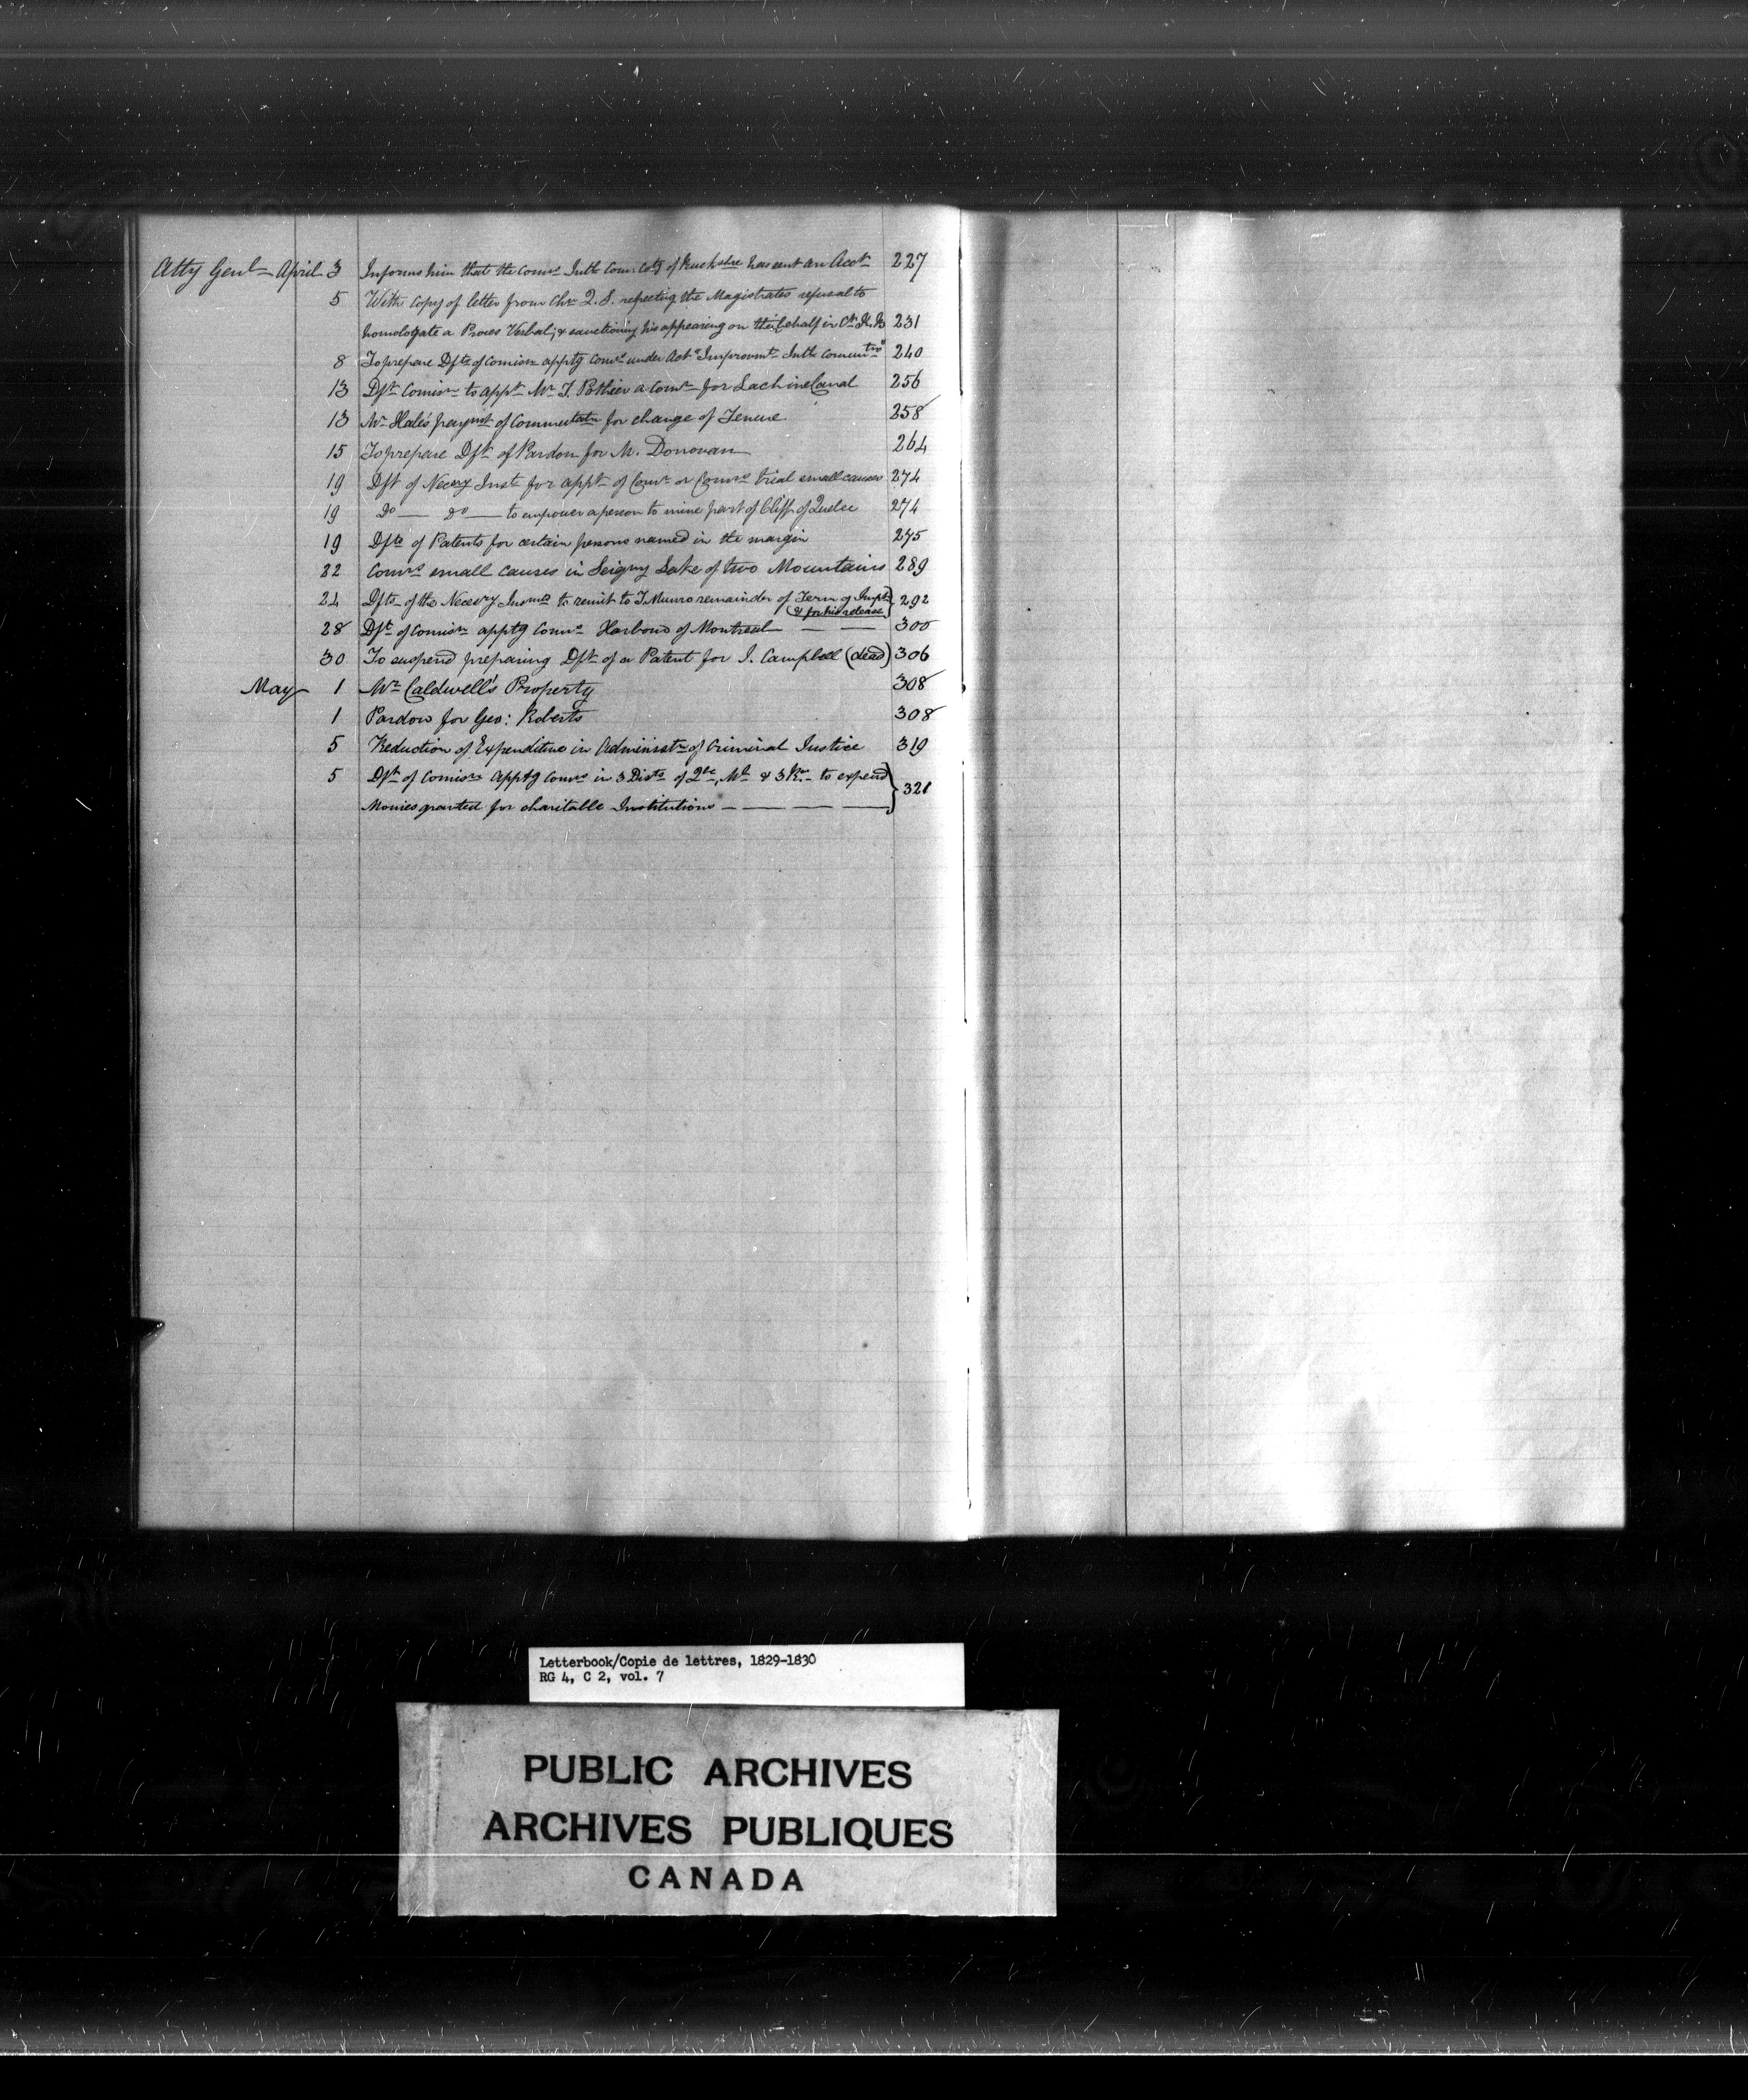 Atty Genl April 3 Informs him that the Comrs Intl Com: Coty of Buckshre has sent an Acct 227
5 With Copy of letter from Chn Q.S. respecting the Magistrates refusal to
homologate a Proces Verbal; & sanctioning his appearing on their behalf in Ct. K.B 231
8 To prepare Dfts of Comisn apptg Comrs under Act Improvmt Intl Comuntns 240
13 Dft Comisn to appt Mr T. Pothier a Comr for Lachine Canal 256
13 Mr Hale's paymt of Commutatn for change of Tenure 258
15 To prepare Dft of Pardon for M. Donovan 264
19 Dft of Necesy Inst for appt of Comr or Comrs trial small causes 274
19 Do — Do — to empower a person to mine part of Cliff of Quebec 274
19 Dfts of Patents for certain persons named in the margin 275
22 Comrs small causes in Seigny Lake of two Mountains 289
24 Dfts of the Necesry Insmts to remit to T. Munro remainder of Term of Impt 292
& for his release
28 Dft of Comisn apptg Comrs Harbour of Montreal — — 300
30 To suspend preparing Dft of a Patent for J. Campbell (dead) 306
May 1 Mr Caldwell's Property 308
1 Pardon for Geo: Roberts 308
5 Reduction of Expenditure in Administn of Criminal Justice 319
5 Dft of Comisn Apptg Comrs in 3 Dists of Qbc, Ml & 3 Rrs to expend
Monies granted for charitable Institutions — — — — 321
Letterbook/Copie de lettres, 1829-1830
RG 4, C 2, vol. 7
PUBLIC ARCHIVES
ARCHIVES PUBLIQUES
CANADA